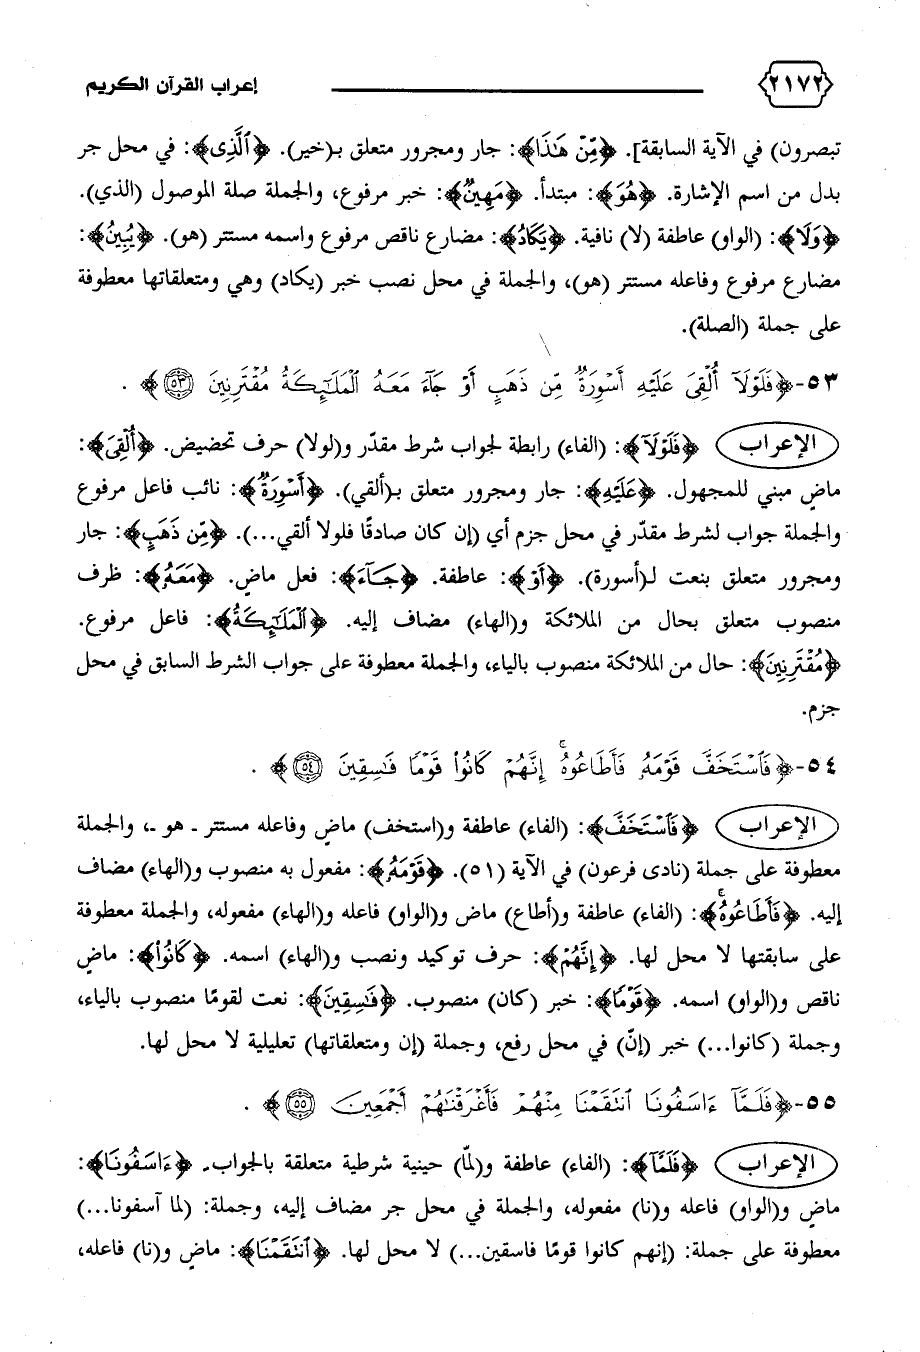 ٢١٧٢ إعراب القرآن الكريم
تبصرون) في الآية السابقة]. ﴿مِّنْ هَٰذَا﴾: جار ومجرور متعلق بـ(خير). ﴿ٱلَّذِى﴾: في محل جر
بدل من اسم الإشارة. ﴿هُوَ﴾: مبتدأ. ﴿مَهِينٌ﴾: خبر مرفوع، والجملة صلة الموصول (الذي).
﴿وَلَا﴾: (الواو) عاطفة (لا) نافية. ﴿يَكَادُ﴾: مضارع ناقص مرفوع واسمه مستتر (هو). ﴿يُبِينُ﴾:
مضارع مرفوع وفاعله مستتر (هو)، والجملة في محل نصب خبر (يكاد) وهي ومتعلقاتها معطوفة
على جملة (الصلة).
٥٣-﴿فَلَوْلَآ أُلْقِىَ عَلَيْهِ أَسْوِرَةٌ مِّن ذَهَبٍ أَوْ جَآءَ مَعَهُ ٱلْمَلَٰٓئِكَةُ مُقْتَرِنِينَ ٥٣﴾ .
الإعراب ﴿فَلَوْلَآ﴾: (الفاء) رابطة لجواب شرط مقدّر و(لولا) حرف تحضيض. ﴿أُلْقِىَ﴾:
ماضٍ مبني للمجهول. ﴿عَلَيْهِ﴾: جار ومجرور متعلق بـ(ألقي). ﴿أَسْوِرَةٌ﴾: نائب فاعل مرفوع
والجملة جواب لشرط مقدّر في محل جزم أي (إن كان صادقًا فلولا ألقي...). ﴿مِّن ذَهَبٍ﴾: جار
ومجرور متعلق بنعت لـ(أسورة). ﴿أَوْ﴾: عاطفة. ﴿جَآءَ﴾: فعل ماضٍ. ﴿مَعَهُ﴾: ظرف
منصوب متعلق بحال من الملائكة و(الهاء) مضاف إليه. ﴿ٱلْمَلَٰٓئِكَةُ﴾: فاعل مرفوع.
﴿مُقْتَرِنِينَ﴾: حال من الملائكة منصوب بالياء، والجملة معطوفة على جواب الشرط السابق في محل
جزم.
٥٤-﴿فَٱسْتَخَفَّ قَوْمَهُۥ فَأَطَاعُوهُ ۚ إِنَّهُمْ كَانُوا۟ قَوْمًا فَٰسِقِينَ ٥٤﴾ .
الإعراب ﴿فَٱسْتَخَفَّ﴾: (الفاء) عاطفة و(استخف) ماضٍ وفاعله مستتر ـ هو ـ، والجملة
معطوفة على جملة (نادى فرعون) في الآية (٥١). ﴿قَوْمَهُۥ﴾: مفعول به منصوب و(الهاء) مضاف
إليه. ﴿فَأَطَاعُوهُ ۚ﴾: (الفاء) عاطفة و(أطاع) ماض و(الواو) فاعله و(الهاء) مفعوله، والجملة معطوفة
على سابقتها لا محل لها. ﴿إِنَّهُمْ﴾: حرف توكيد ونصب و(الهاء) اسمه. ﴿كَانُوا۟﴾: ماضٍ
ناقص و(الواو) اسمه. ﴿قَوْمًا﴾: خبر (كان) منصوب. ﴿فَٰسِقِينَ﴾: نعت لقومًا منصوب بالياء،
وجملة (كانوا...) خبر (إنّ) في محل رفع، وجملة (إن ومتعلقاتها) تعليلية لا محل لها.
٥٥-﴿فَلَمَّآ ءَاسَفُونَا ٱنتَقَمْنَا مِنْهُمْ فَأَغْرَقْنَٰهُمْ أَجْمَعِينَ ٥٥﴾ .
الإعراب ﴿فَلَمَّآ﴾: (الفاء) عاطفة و(لمّا) حينية شرطية متعلقة بالجواب. ﴿ءَاسَفُونَا﴾:
ماضٍ و(الواو) فاعله و(نا) مفعوله، والجملة في محل جر مضاف إليه، وجملة: (لما آسفونا...)
معطوفة على جملة: (إنهم كانوا قومًا فاسقين...) لا محل لها. ﴿ٱنتَقَمْنَا﴾: ماضٍ و(نا) فاعله،